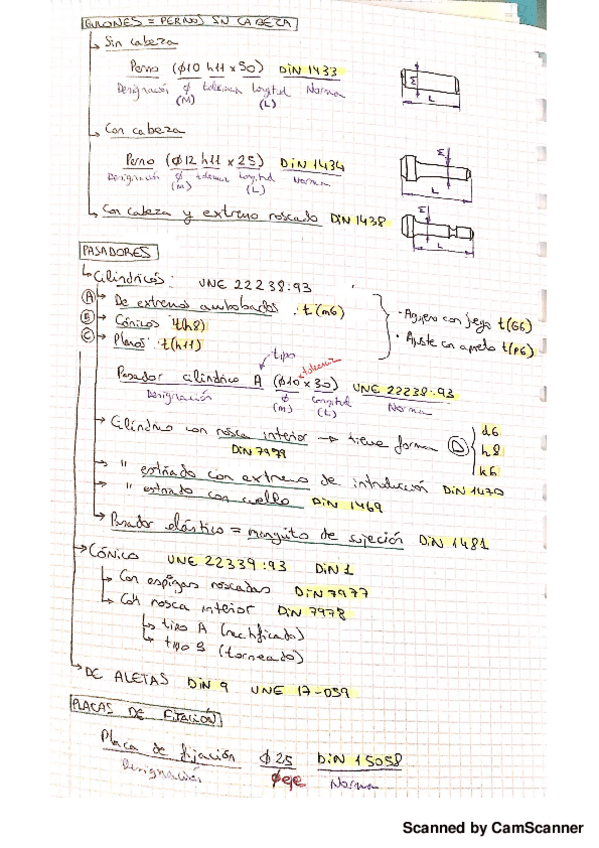 BULONES = PERNOS SIN CABEZA
Sin cabeza
Perno (φ10 h11 x 50) DIN 1433
Designación φ tolerancia longitud Norma
(M) (L)
M
L
Con cabeza
Perno (φ12 h11 x 25) DIN 1434
Designación φ tolerancia longitud Norma
(M) (L)
M
L
Con cabeza y extremo roscado DIN 1438
M
L
PASADORES
Cilíndricos: UNE 22238:93
A De extremos abombados: t(m6)
B Cónicos t(h8)
C Planos: t(h11)
· Agujero con juego t(G6)
· Ajuste con aprieto t(P6)
tipo tolerancia
Pasador cilíndrico A (φ10 x 30) UNE 22238:93
Designación φ longitud Norma
(M) (L)
Cilíndrico con rosca interior → tiene forma D d6
h8
k6
DIN 7979
" estriado con extremo de introducción DIN 1470
" estriado con cuello DIN 1469
Pasador elástico = manguito de sujeción DIN 1481
Cónico UNE 22339:93 DIN 1
Con espigas roscadas DIN 7977
Con rosca interior DIN 7978
tipo A (rectificado)
tipo B (torneado)
DE ALETAS DIN 9 UNE 17-059
PLACAS DE FIJACIÓN
Placa de fijación φ25 DIN 15058
Designación φeje Norma
Scanned by CamScanner